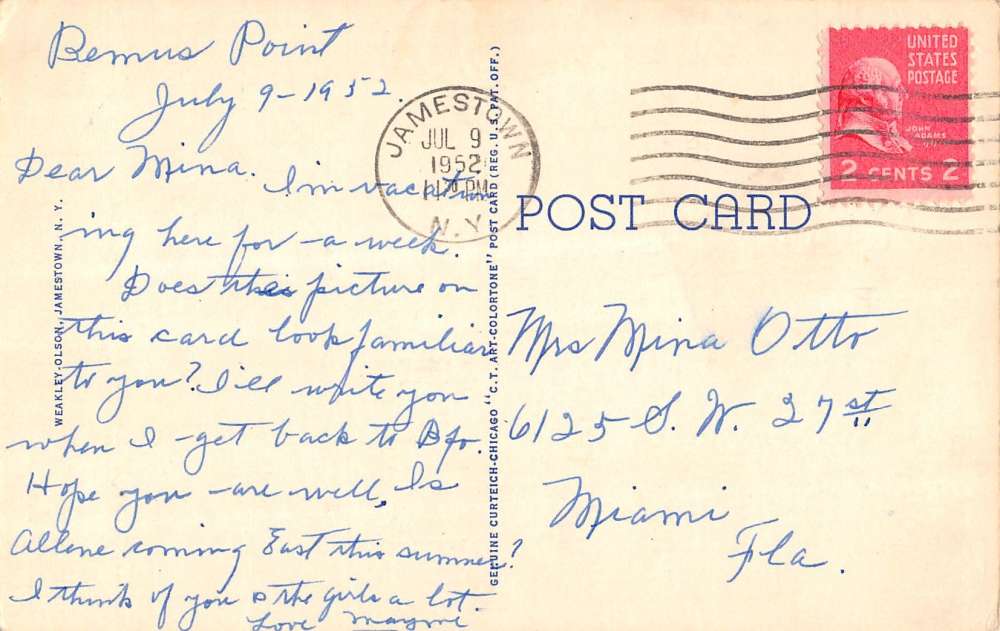 Bemus Point
July 9-1952.
Dear Mina.
I'm vacation
ing here for a week.
Does this picture on
this card look familiar
to you? I'll write you
when I get back to Bfo.
Hope you are well, Is
Allene coming East this summer?
I think of you & the girls a lot.
Love Mayme
WEAKLEY-OLSON, JAMESTOWN, N. Y.
GENUINE CURTEICH-CHICAGO "C.T. ART-COLORTONE" POST CARD (REG. U.S. PAT. OFF.)
JAMESTOWN
JUL 9
1952
PM
N.Y.
UNITED
STATES
POSTAGE
JOHN
ADAMS
2 CENTS 2
POST CARD
Mrs Mina Otto
6125 S. W. 27 st
Miami
Fla.